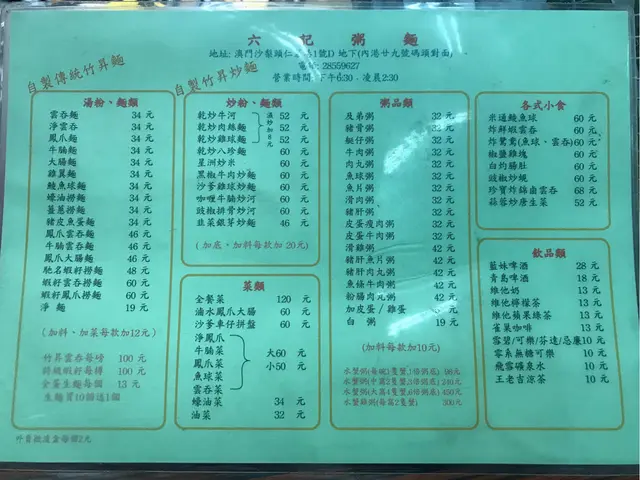 六記粥麵
地址: 澳門沙梨頭仁慕巷1號D 地下(內港廿九號碼頭對面)
電話: 28559627
營業時間: 下午6:30 - 凌晨2:30
自製傳統竹昇麵
自製竹昇炒麵
湯粉、麵類
雲吞麵 34 元
淨雲吞 34 元
鳳爪麵 34 元
牛腩麵 34 元
大腸麵 34 元
雞翼麵 34 元
鯪魚球麵 34 元
蠔油撈麵 34 元
薑蔥撈麵 34 元
豬皮魚蛋麵 34 元
鳳爪雲吞麵 46 元
牛腩雲吞麵 46 元
鳳爪大腸麵 46 元
馳名蝦籽撈麵 48 元
蝦籽雲吞撈麵 60 元
蝦籽鳳爪撈麵 60 元
淨麵 19 元
(加料、加菜每款加12元)
竹昇雲吞每磅 100 元
蝦籽每樽 100 元
全蛋生麵每個 13 元
生麵買10個送1個
炒粉、麵類
乾炒牛河 52 元
乾炒肉絲麵 52 元
乾炒八珍麵 60 元
濕炒加8元
星洲炒米 60 元
黑椒牛肉炒麵 60 元
沙爹雞球炒麵 60 元
咖喱牛腩炒河 60 元
豉椒排骨炒河 60 元
韭菜銀芽炒麵 46 元
(加底、加料每款加 20元)
菜類
全餐菜 120 元
滷水鳳爪大腸 60 元
沙爹車仔拼盤 60 元
淨鳳爪
牛腩菜
鳳爪菜
魚球菜
雲吞菜
大60 元
小50 元
蠔油菜 34 元
油菜 32 元
粥品類
及弟粥 32 元
豬骨粥 32 元
艇仔粥 32 元
牛肉粥 32 元
肉丸粥 32 元
魚球粥 32 元
魚片粥 32 元
滑肉粥 32 元
豬肝粥 32 元
皮蛋瘦肉粥 32 元
皮蛋牛肉粥 32 元
滑雞粥 42 元
豬肝魚片粥 42 元
豬肝肉丸粥 42 元
魚條牛肉粥 42 元
粉腸肉丸粥 42 元
加皮蛋/雞蛋 8 元
白粥 19 元
(加料每款加10元)
各式小食
米通鯪魚球 60 元
炸鮮蝦雲吞 60 元
炸鴛鴦(魚球、雲吞) 60 元
椒鹽雞塊 60 元
白灼腸肚 60 元
豉椒炒蜆 60 元
珍寶炸錦鹵雲吞 68 元
蒜蓉炒唐生菜 52 元
飲品類
藍妹啤酒 28 元
青島啤酒 18 元
維他奶 13 元
維他檸檬茶 13 元
維他蘋果綠茶 13 元
雀巢咖啡 13 元
雪碧/可樂/芬達/忌廉 10 元
零系無糖可樂 10 元
飛雲礦泉水 10 元
王老吉涼茶 10 元
外賣飯盒每個2元